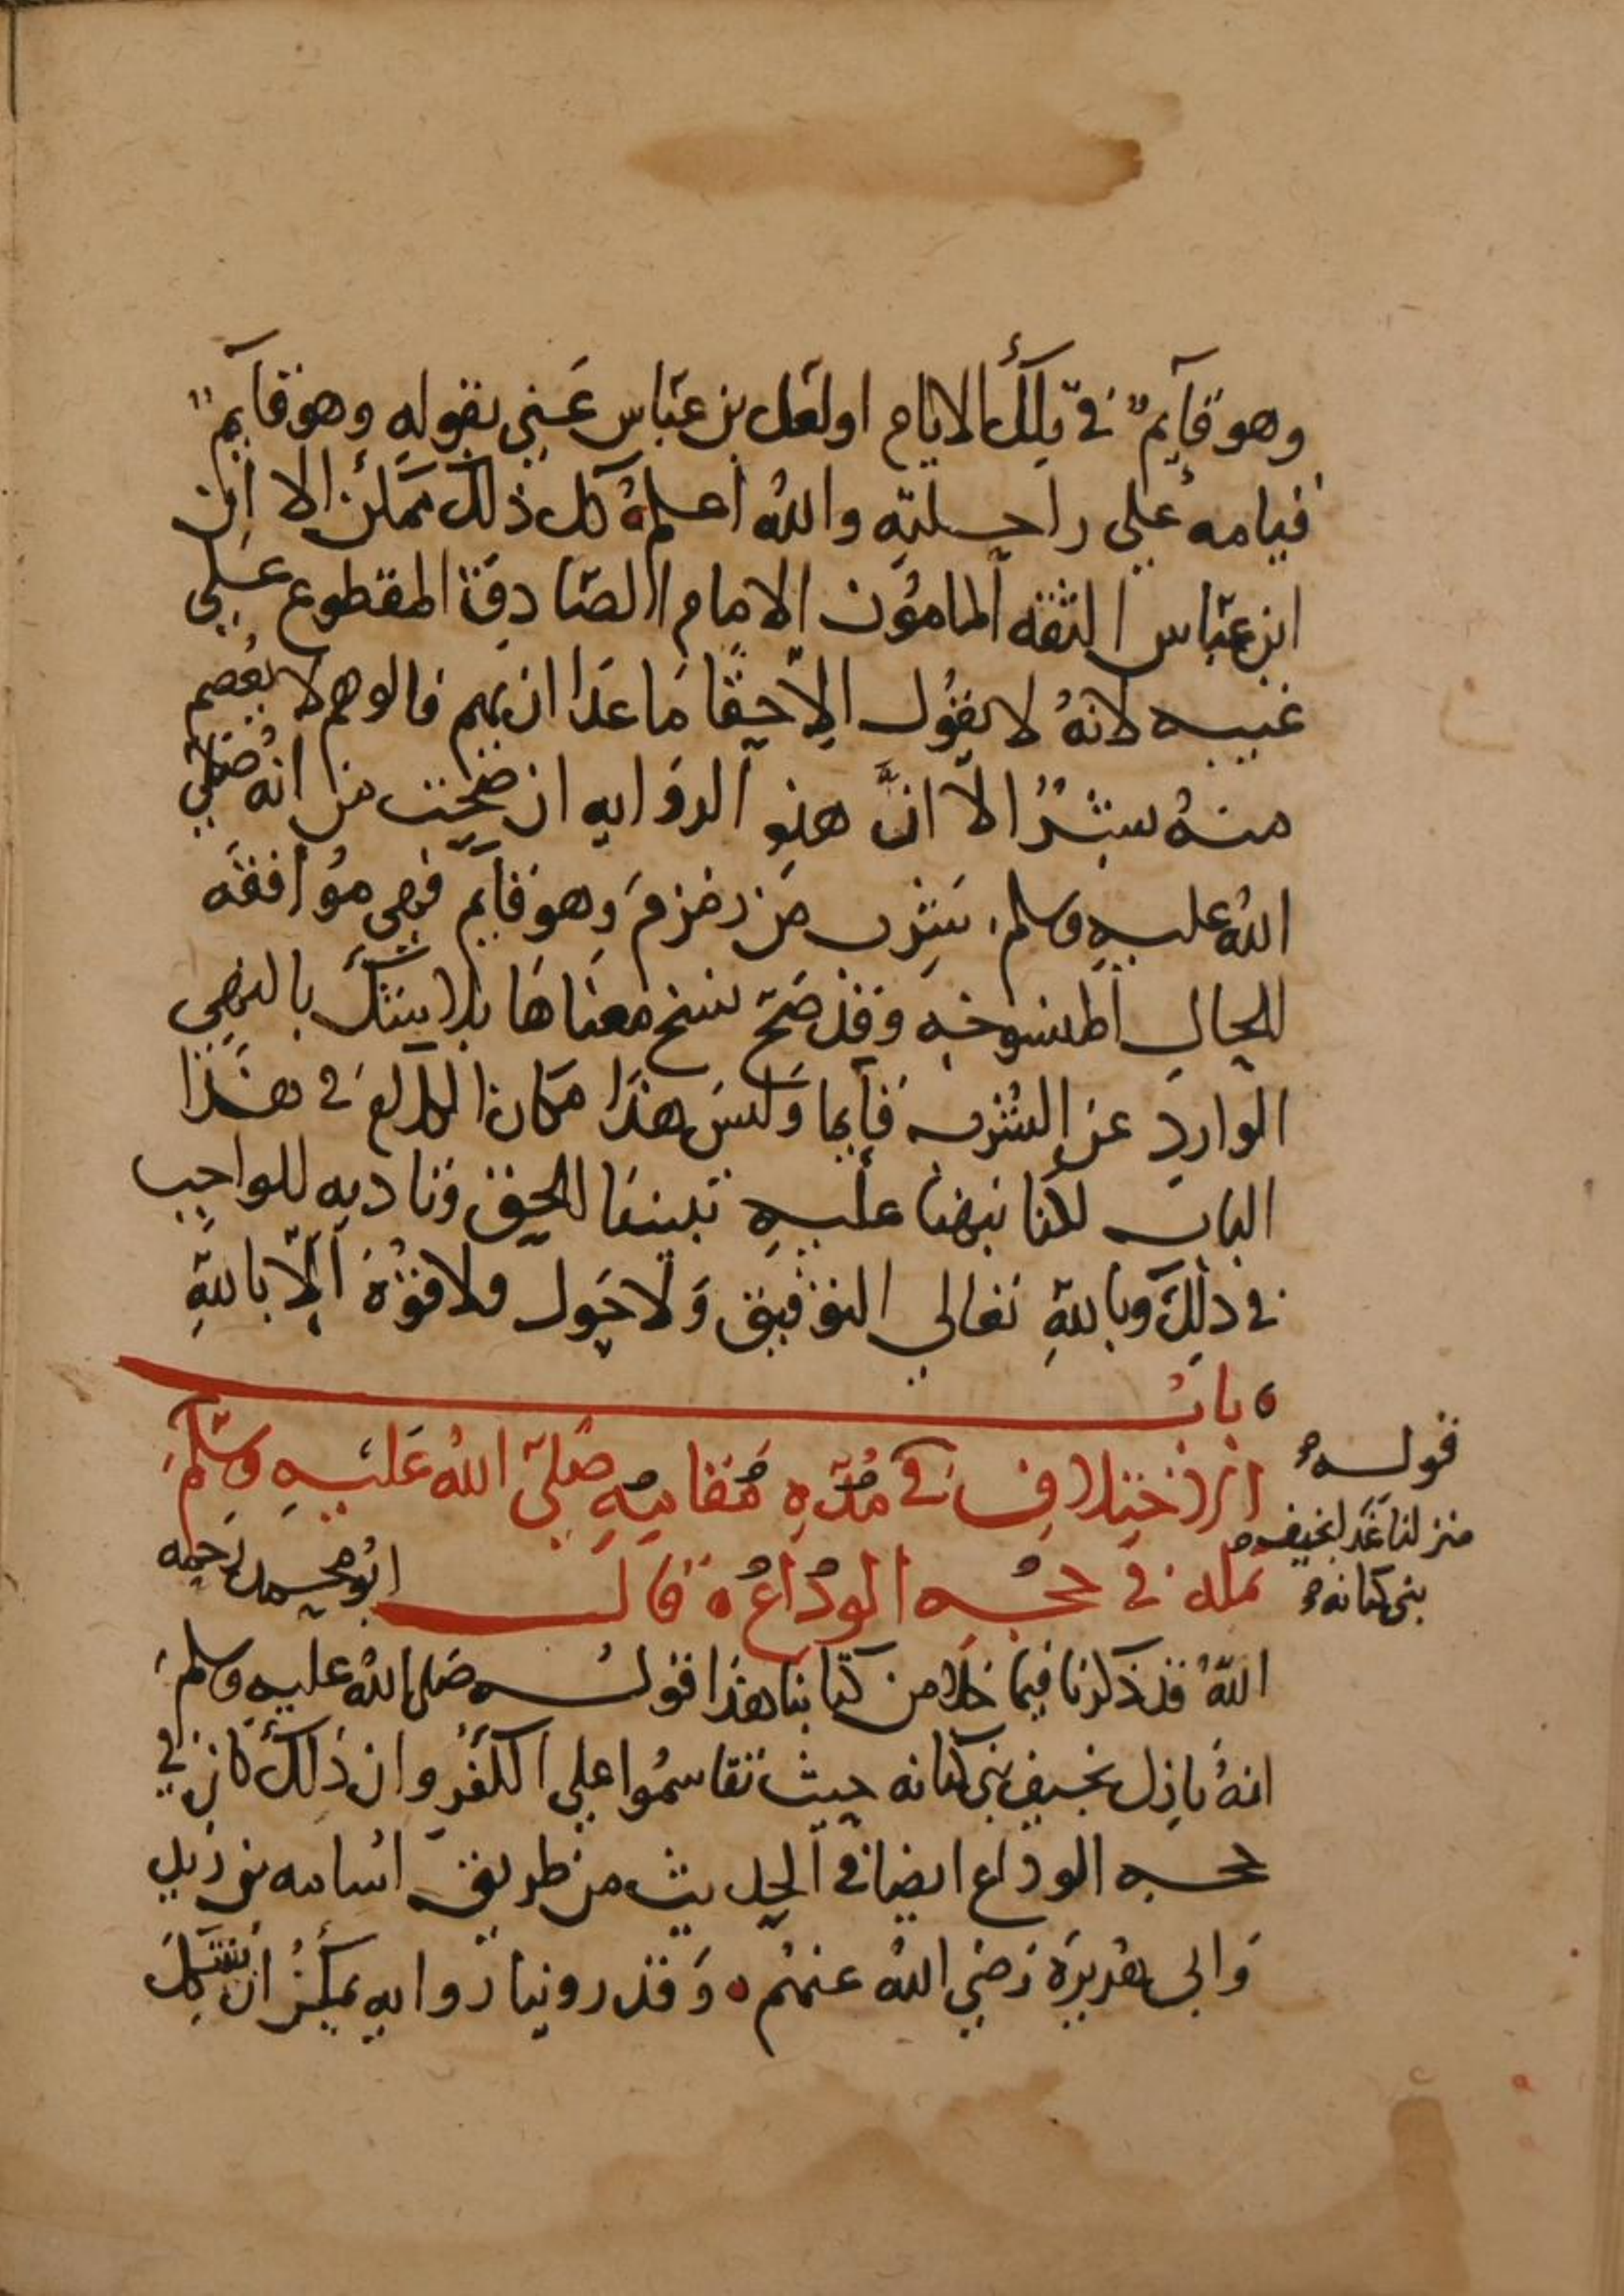 وهو قآيم في تلك الايام اولعل بن عباس عني بقوله وهو قآيم
قيامه علي راحلته والله اعلم كل ذلك ممكن الا ان
ابن عباس الثقه المامون الامام الصادق المقطوع علي
غيبه لانهُ لا يقول الا حقا ما عدا ان يهم فالوهم لا يعصم
منهُ بشرٌ الا انَّ هذه الروايه ان صحت من انه صلي
اللهُ عليه وسلم شرب من زمزم وهو قآيم فهي موافقه
للحال المنسوخه وقد صَحّ نسخ معناها بلا شك بالنهي
الوارد عن الشرب قآيما وليس هذا مكان الكلام في هذا
الباب لكنا نبهنا عليه تبيينا للحق وتاديه للواجب
في ذلك وبالله تعالي التوفيق وَلا حَول ولا قوة الّا بالله
بابُ
الاختلاف في مُدّه مُقامه صَلّي اللهُ عَليه وسَلّم
بمكه في حجه الوداع قال ابو محمد رحمه
اللهُ قد ذكرنا فيما خلا من كتابنا هذا قوله صَلي اللهُ عليه وسلم
انهُ نازل بخيف بني كنانه حيث تقاسمُوا علي الكفر وان ذلك كان في
حجه الوداع ايضا في الحديث من طريق اسامه بن زيد
وَابي هُريرَة رَضي اللهُ عنهُم وَقد روينا روايه يمكن ان تشكل
قوله
منزلنا غدا بخيف
بني كنانه